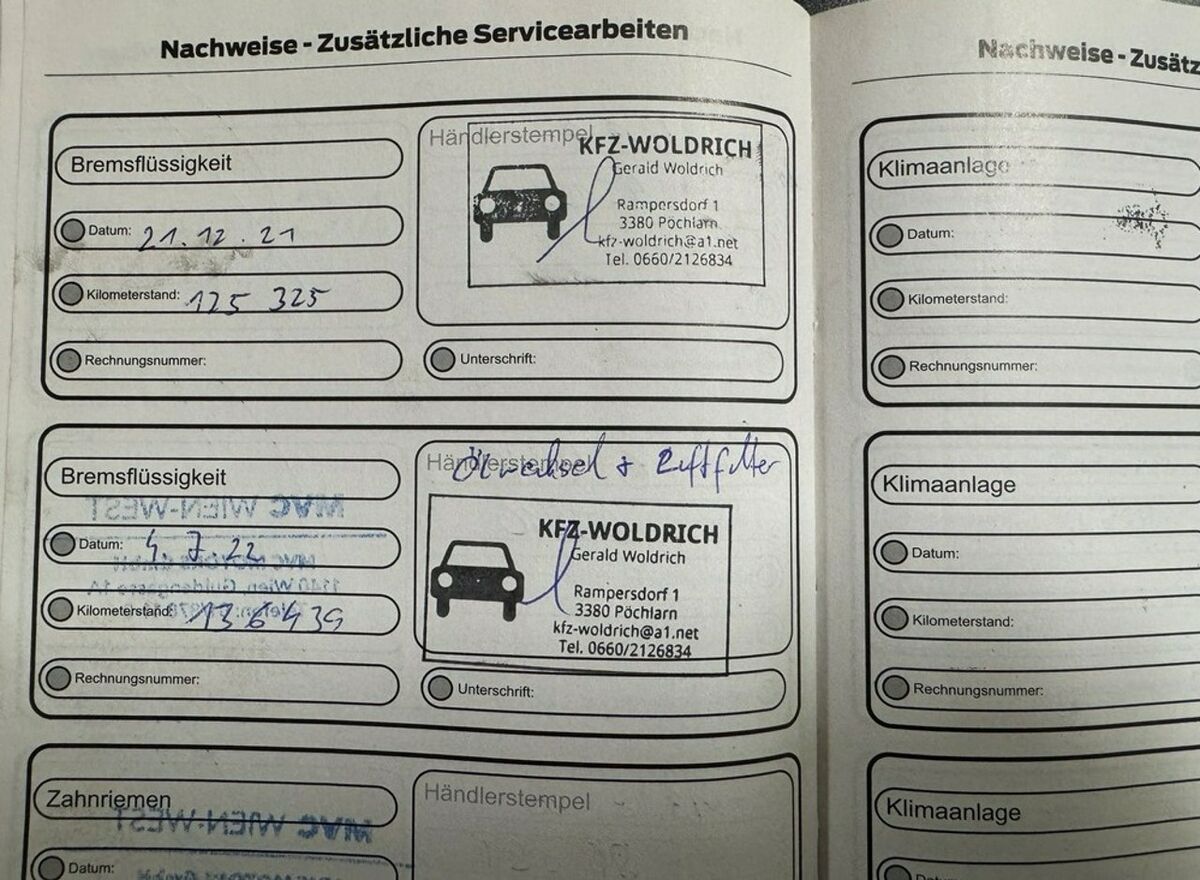 Nachweise - Zusätzliche Servicearbeiten
Bremsflüssigkeit
Datum: 21.12.21
Kilometerstand: 125 325
Rechnungsnummer:
Händlerstempel
KFZ-WOLDRICH
Gerald Woldrich
Rampersdorf 1
3380 Pöchlarn
kfz-woldrich@a1.net
Tel. 0660/2126834
Unterschrift:
Bremsflüssigkeit
Datum: 4. 7 22
Kilometerstand: 136 439
Rechnungsnummer:
Händlerstempel
Ölwechsel + Luftfilter
KFZ-WOLDRICH
Gerald Woldrich
Rampersdorf 1
3380 Pöchlarn
kfz-woldrich@a1.net
Tel. 0660/2126834
Unterschrift:
MVC WIEN-WEST
1140 Wien
Zahnriemen
MVC WIEN-WEST
Datum:
Händlerstempel
Nachweise - Zusätz
Klimaanlage
Datum:
Kilometerstand:
Rechnungsnummer:
Klimaanlage
Datum:
Kilometerstand:
Rechnungsnummer:
Klimaanlage
Datum: